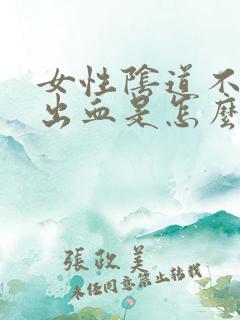 女性陰道不
出血是怎麼
張政美
未經同意禁止轉載